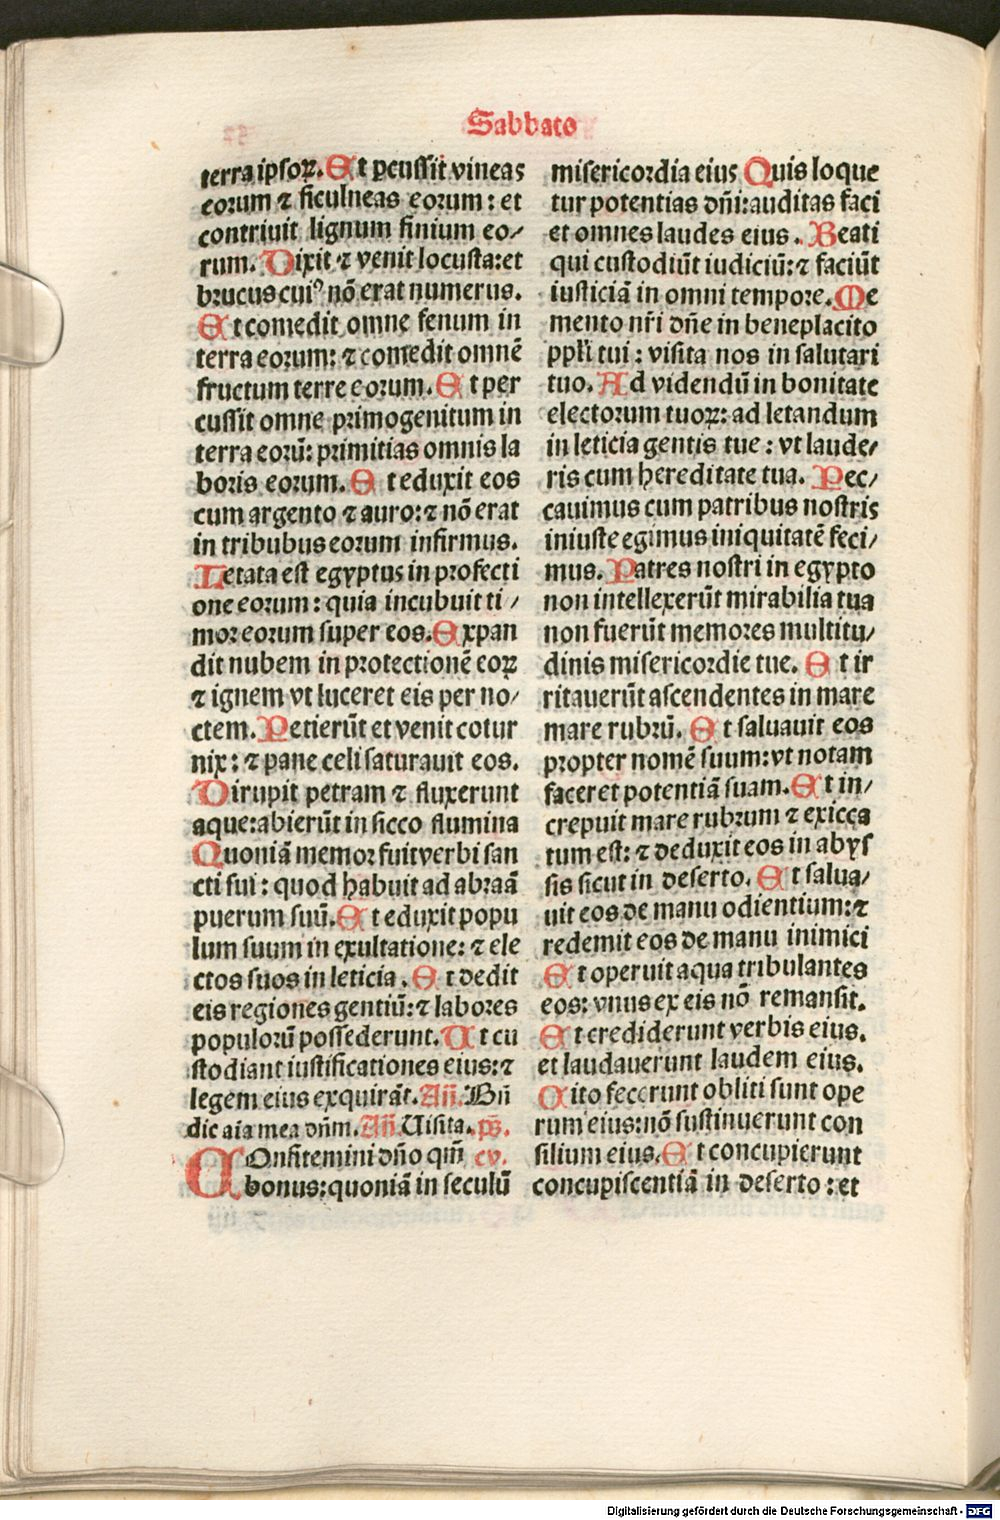 Sabbato
terra ipsoꝝ. Et ꝑcussit vineas
eorum ⁊ ficulneas eorum: et
contriuit lignum finium eo/
rum. Dixit ⁊ venit locusta: et
brucus cuiꝰ nō erat numerus.
Et comedit omne fenum in
terra eorum: ⁊ comedit omnē
fructum terre eorum. Et per
cussit omne primogenitum in
terra eorū: primitias omnis la
boris eorum. Et eduxit eos
cum argento ⁊ auro: ⁊ nō erat
in tribubus eorum infirmus.
Letata est egyptus in profecti
one eorum: quia incubuit ti/
mor eorum super eos. Expan
dit nubem in protectionē eoꝝ
⁊ ignem vt luceret eis per no/
ctem. Petierūt et venit cotur
nix: ⁊ pane celi saturauit eos.
Dirupit petram ⁊ fluxerunt
aque: abierūt in sicco flumina
Quoniā memor fuit verbi san
cti sui: quod habuit ad abraā
puerum suū. Et eduxit popu
lum suum in exultatione: ⁊ ele
ctos suos in leticia. Et dedit
eis regiones gentiū: ⁊ labores
populorū possederunt. Ut cu
stodiant iustificationes eius: ⁊
legem eius exquirāt. Añ. Bñ
dic aīa mea dñm. Añ. Uisita. ps̄.
COnfitemini dño qm̄ cv.
bonus: quoniā in seculū
misericordia eius Quis loque
tur potentias dñi: auditas faci
et omnes laudes eius. Beati
qui custodiūt iudiciū: ⁊ faciūt
iusticiā in omni tempore. Me
mento nr̄i dñe in beneplacito
ppl̄i tui: visita nos in salutari
tuo. Ad videndū in bonitate
electorum tuoꝝ: ad letandum
in leticia gentis tue: vt laude/
ris cum hereditate tua. Pec/
cauimus cum patribus nostris
iniuste egimus iniquitatē feci/
mus. Patres nostri in egypto
non intellexerūt mirabilia tua
non fuerūt memores multitu/
dinis misericordie tue. Et ir
ritauerūt ascendentes in mare
mare rubrū. Et saluauit eos
propter nomē suum: vt notam
faceret potentiā suam. Et in/
crepuit mare rubrum ⁊ exicca
tum est: ⁊ deduxit eos in abys
sis sicut in deserto. Et salua/
uit eos de manu odientium: ⁊
redemit eos de manu inimici
Et operuit aqua tribulantes
eos: vnus ex eis nō remansit.
Et crediderunt verbis eius.
et laudauerunt laudem eius.
Cito fecerunt obliti sunt ope
rum eius: nō sustinuerunt con
silium eius. Et concupierunt
concupiscentiā in deserto: et
Digitalisierung gefördert durch die Deutsche Forschungsgemeinschaft - DFG